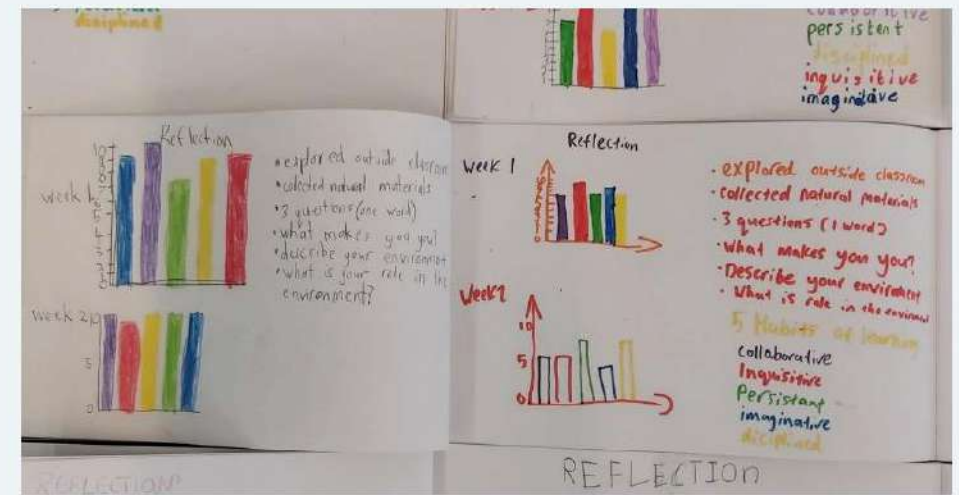 disciplined
persistent
disciplined
inquisitive
imaginative
Reflection
week 1
10
• explored outside classroom
• collected natural materials
• 3 questions (one word)
• what makes you you?
• describe your environment
• what is your role in the
environment?
week 2
10
5
0
Reflection
Week 1
• explored outside classroom
• collected natural materials
• 3 questions (1 word)
• What makes you you?
• Describe your enviroment
• What is role in the
Week 2
10
5
0
5 Habits of learning
collaborative
Inquisitive
Persistant
imaginative
diciplined
REFLECTION
REFLECTION